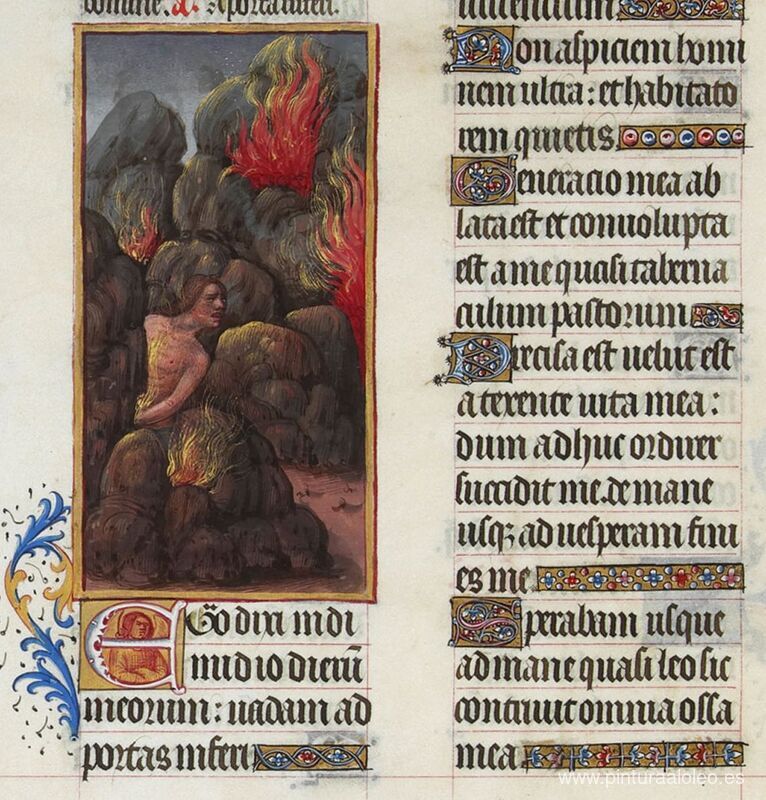 Ego dixi in di
midio dierū
meorum: vadam ad
portas inferi
Non aspiciam homi
nem ultra: et habitato
rem quietis.
Generacio mea ab
lata est et convoluta
est a me quasi taberna
culum pastorum
Precisa est velut est
a texente vita mea:
dum adhuc ordirer
succidit me. de mane
usq; ad vesperam fini
es me
Sperabam usque
ad mane quasi leo sic
contrivit omnia ossa
mea
www.pinturaaloleo.es